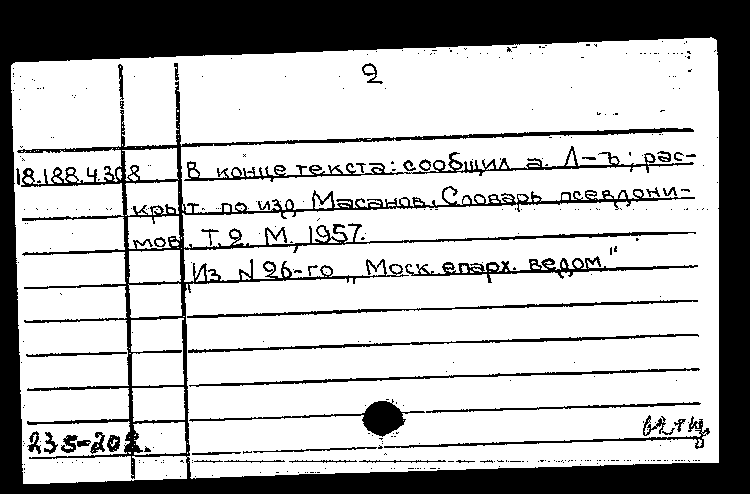 2
18.188.4.308 В конце текста: сообщил а. Л-ъ; рас-
крыт. по изд. Масанов. Словарь псевдони-
мов. Т. 2. М., 1957.
„Из N 26-го „Моск. епарх. ведом."
235-202.